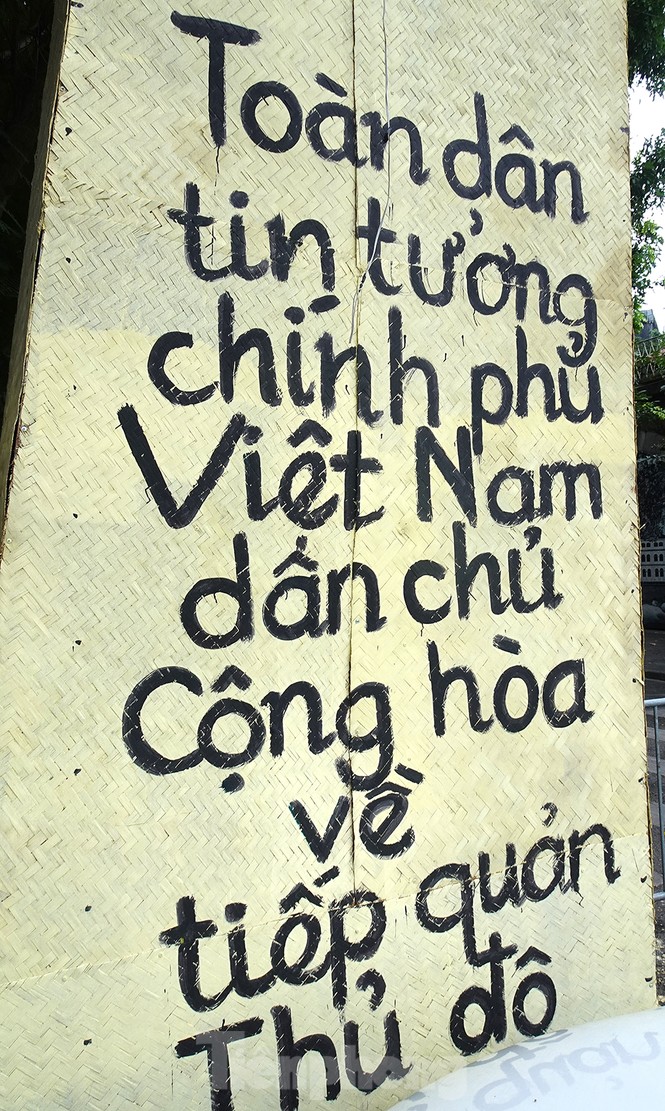 Toàn dân
tin tưởng
chính phủ
Việt Nam
dân chủ
Cộng hòa
về
tiếp quản
Thủ đô
Tiền phong